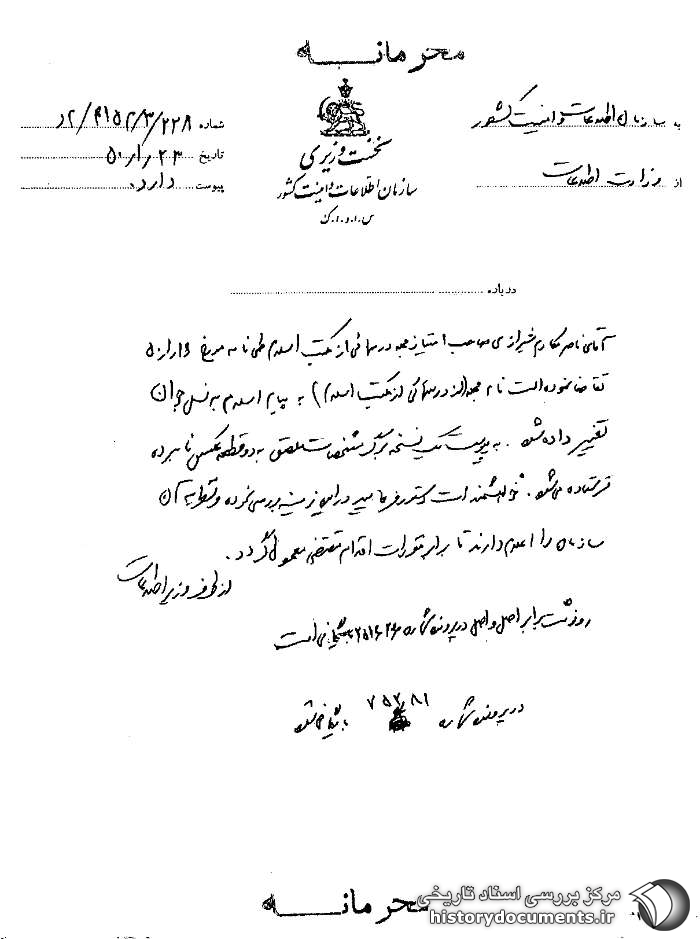 محرمانه
به سازمان اطلاعات و امنیت کشور
از وزارت اطلاعات
نخست وزیری
سازمان اطلاعات و امنیت کشور
س.ا.و.ا.ک
شماره
تاریخ ۲۳ر۱ر۵۰
پیوست دارد.
درباره
آقای ناصر مکارم شیرازی صاحب امتیاز مجله درسهائی از مکتب اسلام طی نامه مورخ
تقاضا نموده است نام مجله (از درسهائی از مکتب اسلام) به پیام اسلام به نسل جوان
تغییر داده شود. به پیوست یک نسخه برگ مشخصات ملصق به دو قطعه عکس نامبرده
فرستاده می‌شود. خواهشمند است دستور فرمایید در این زمینه بررسی نموده و نظریه آن
سازمان را اعلام دارند تا برابر مقررات اقدام مقتضی معمول گردد.
از طرف وزیر اطلاعات
رونوشت برابر اصل و اصل در پرونده شماره بایگانی است
در پرونده شماره ۷۵۲۸۱ بایگانی شود
محرمانه
مرکز بررسی اسناد تاریخی
historydocuments.ir